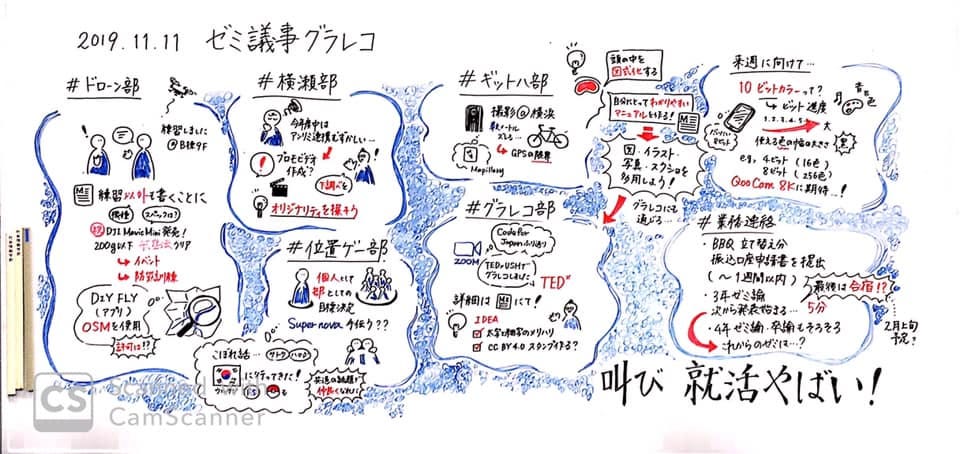 2019.11.11 ゼミ議事グラレコ
#ドローン部
練習しました
@B棟9F
練習以外も書くことに
機種
スペックは?
DJI Mavic Mini 発売!
200g以下
クリア
→イベント
→防災訓練
DIY FLY
(アプリ)
OSMを使用
許可は!?
#横瀬部
今年中は
アプリ連携むずかしい…
プロモビデオ
作成?
下調べを
オリジナリティを探そう
#位置ゲー部
個人として
部としての
目標決定
Super nova 今年から??
こぼれ話…
サトウ
に行ってきた!
共通の話題で
仲良くなれる!
#ギットハブ部
撮影@横浜
数メートル
ズレる…
→GPSの限界
Mapillary
頭の中を
図式化する
自分にとってわかりやすい
マニュアルを作る!
図・イラスト・
写真・スクショを
多用しよう!
グラレコにも
通じる…
#グラレコ部
ZOOM
Code for
Japanふり返り
TEDxUSHで
グラレコしました
TEDx
詳細は
にて!
IDEA
太字・細字のメリハリ
CC BY 4.0 スタンプ作る?
来週に向けて…
10ビットカラーって?
→ビット深度
1.2.3.4.5
大
使える色の幅の大きさ
e.g. 4ビット (16色)
8ビット (256色)
QooCam 8Kに期待…!
#業務連絡
・BBQ 立て替え分
振込口座申請書を提出
(〜1週間以内)
・3年ゼミ論
次から発表始まる… 5分
・4年ゼミ論・卒論もそろそろ
これからのゼミは…?
最後は合宿!?
2月上旬
予定?
叫び 就活やばい!
CS
CamScanner